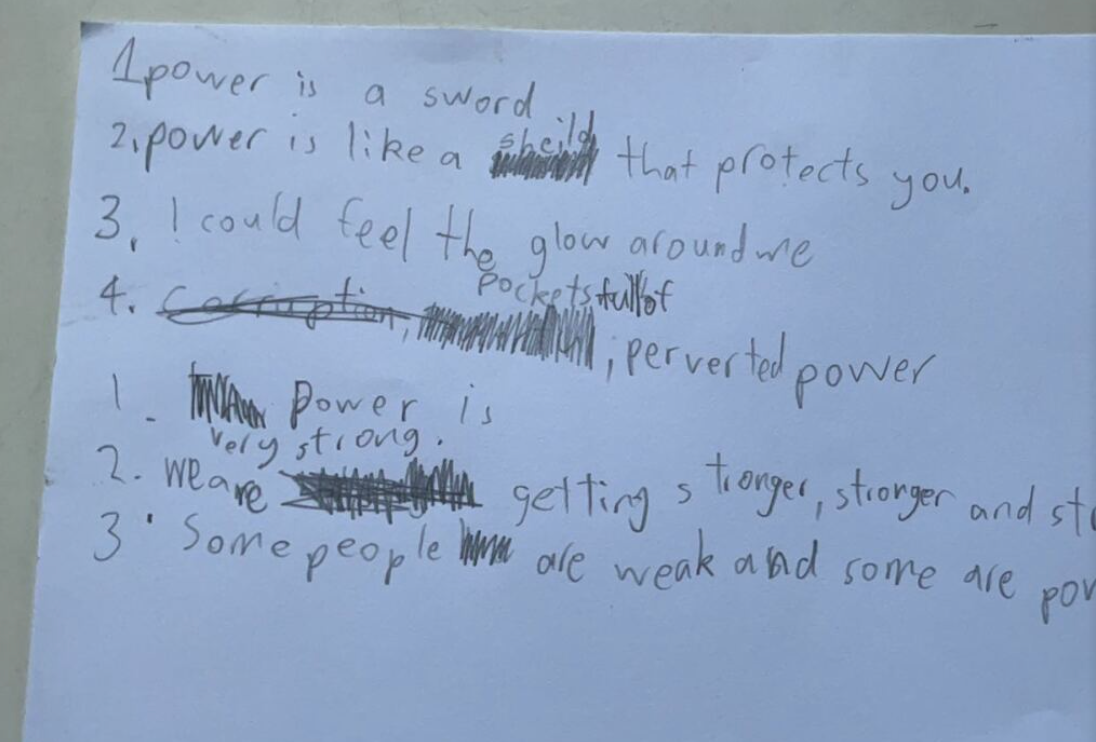 1 power is a sword
2. power is like a sheild that protects you.
3. I could feel the glow around me
pockets full of
4. Corruption, , perverted power
1. Power is
very strong.
2. we are getting stronger, stronger and str
3. Some people are weak and some are pow